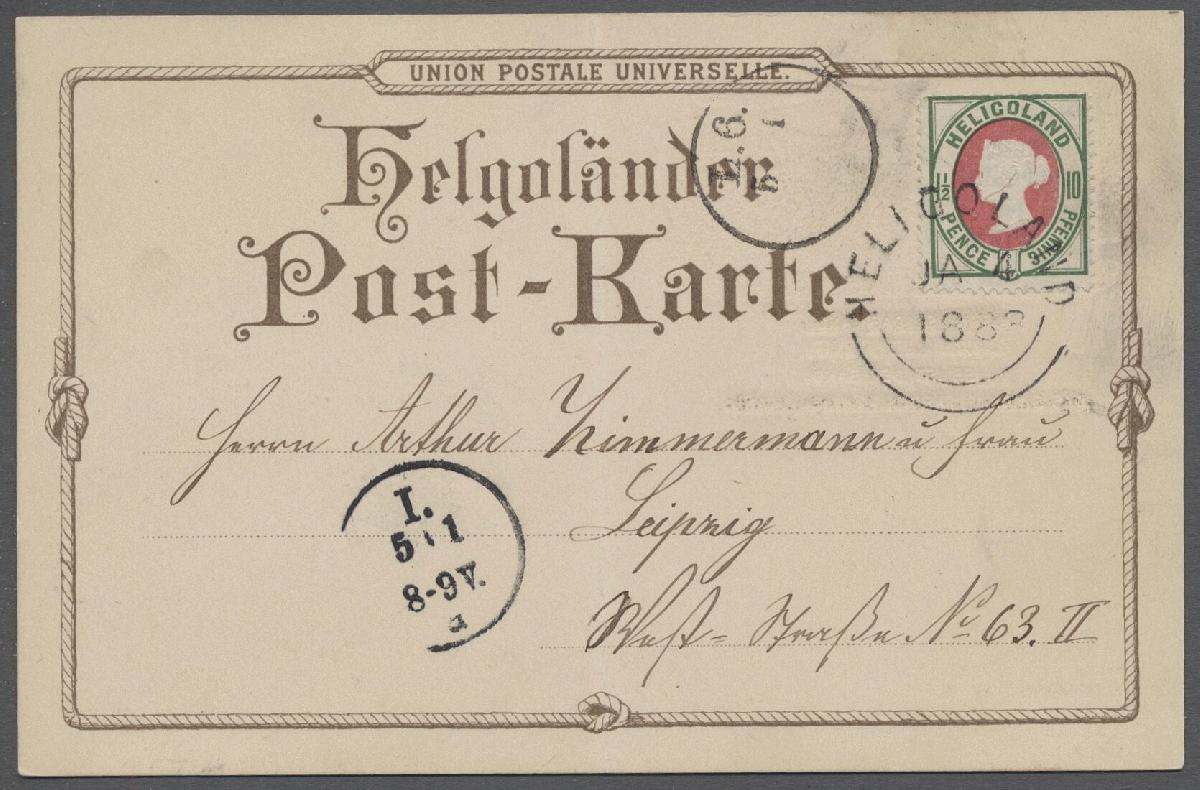 UNION POSTALE UNIVERSELLE.
Helgoländer
Post-Karte.
HELIGOLAND
1½ 10
PENCE PFENNIG
HELIGOLAND
JA 4
188
Herrn Arthur Zimmermann u Frau
Leipzig
West-Straße No 63. II
I.
5 1
8-9V.
a